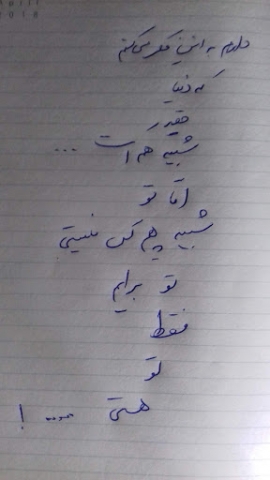 دارم به این فکر میکنم
که دنیا
چقدر
شبیه هم است ...
اما تو
شبیه هیچ کس نیستی
تو برایم
فقط
تو
هستی .... !